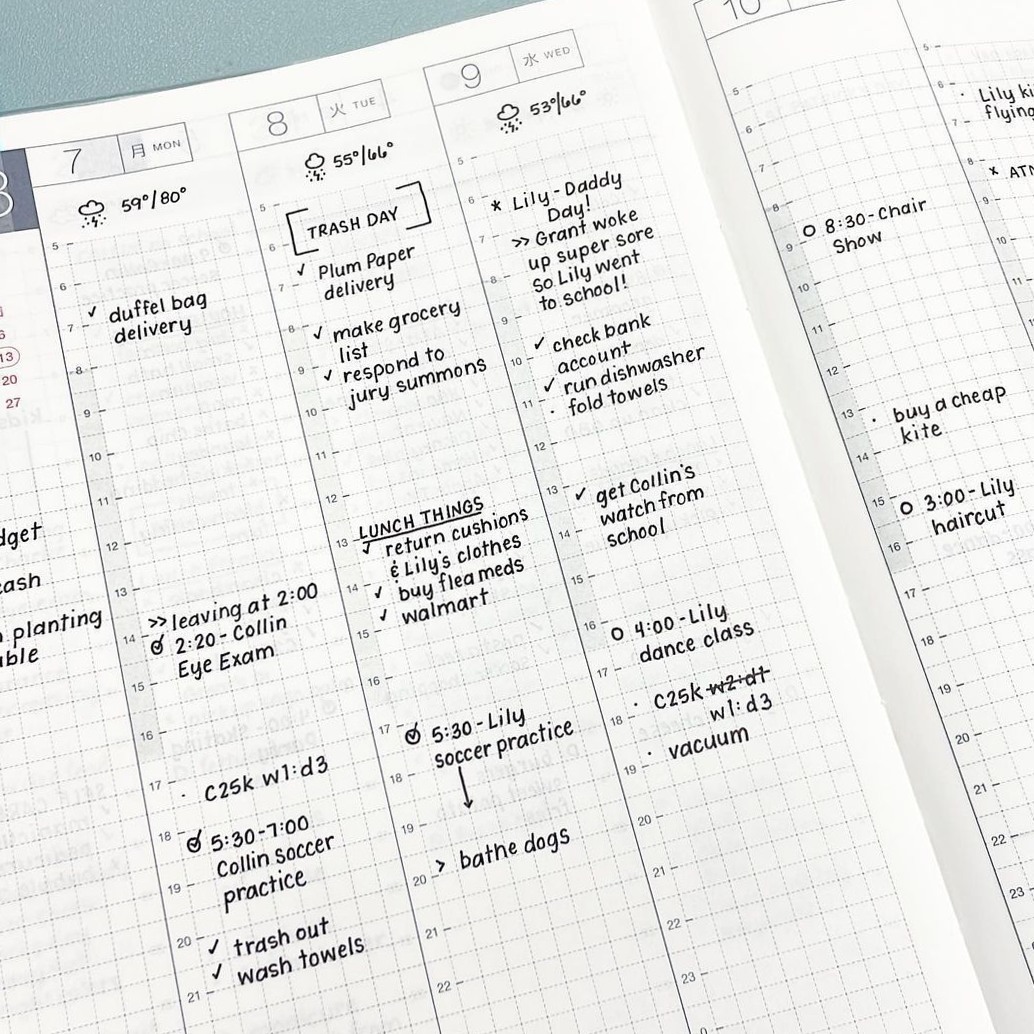 3
6
13
20
27
dget
cash
planting
able
7 月 MON
59°/80°
5
6
✓ duffel bag
7
delivery
8
9
10
11
12
13
>> leaving at 2:00
14
2:20 - Collin
Eye Exam
15
16
17
· C25K W1:d3
18
5:30-7:00
Collin soccer
19
practice
20
✓ trash out
✓ wash towels
21
8 火 TUE
55°/66°
5
TRASH DAY
6
✓ Plum Paper
7
delivery
8
✓ make grocery
list
9
✓ respond to
jury summons
10
11
12
LUNCH THINGS
13
✓ return cushions
& Lily's clothes
14
✓ buy flea meds
✓ walmart
15
16
17
5:30 - Lily
soccer practice
18
19
> bathe dogs
20
21
22
9 水 WED
53°/66°
5
6
* Lily - Daddy
Day!
7
>> Grant woke
up super sore
8
so Lily went
to school!
9
✓ check bank
10
account
✓ run dishwasher
11
· fold towels
12
13
✓ get Collin's
watch from
14
school
15
16
4:00 - Lily
dance class
17
· C25K w2:d1
18
w1:d3
· vacuum
19
20
21
22
23
0
10
5
6
7
8
8:30 - Chair
9
Show
10
11
12
13
· buy a cheap
kite
14
15
3:00 - Lily
haircut
16
17
18
19
20
21
22
23
5
6
· Lily ki
flying
7
8
x ATM
9
10
11